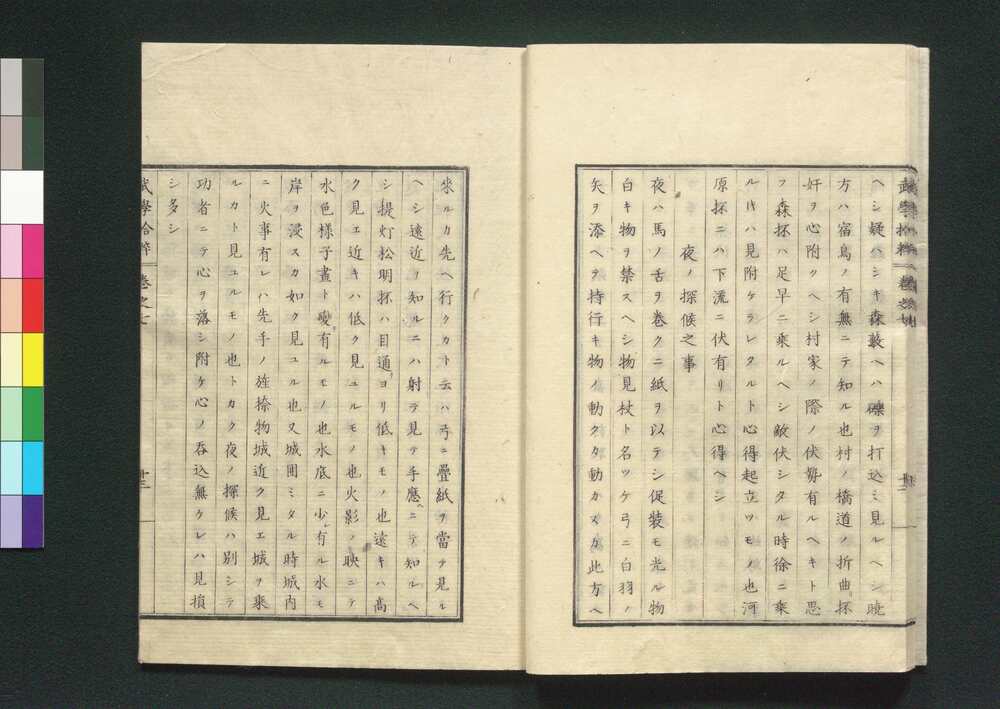 ヘシ疑ハシキ森藪ヘハ礫ヲ打込ミ見ルヘシ暁
方ハ宿鳥ノ有無ニテ知ル也村ノ橋道ノ折曲抔
奸ヲ心附クヘシ村家ノ際ノ伏勢有ルヘキト思
フ森抔ハ足早ニ乗ルヘシ敵伏シタル時徐ニ乗
ルトキハ見附ケラレタルト心得起立ツモノ也河
原抔ニハ下流ニ伏有リト心得ヘシ
夜ノ探候之事
夜ハ馬ノ舌ヲ巻クニ紙ヲ以テシ促装モ光ル物
白キ物ヲ禁スヘシ物見杖ト名ツケ弓ニ白羽ノ
矢ヲ添ヘテ持行キ物ノ動クタ動カスカ此方ヘ
來ルカ先ヘ行クカト云ハ弓ニ疊紙ヲ當テ見ル
ヘシ遠近ヲ知ルニハ射テ見テ手應ヘニテ知ルヘ
シ提灯松明抔ハ目通ヨリ低キモノ也遠キハ高
ク見エ近キハ低ク見ユルモノ也火影ノ映ニテ
水色様子晝ト變有ルモノ也水底ニ少シ有ル水モ
岸ヲ浸スカ如ク見ユル也又城囲ミタル時城内
ニ火事有レハ先手ノ旌捨物城近ク見エ城ヲ乗
ルカト見ユルモノ也トカク夜ノ探候ハ別シテ
功者ニテ心ヲ落シ附ケ心ノ呑込無クレハ見損
シ多シ
武學拾粹 巻之七